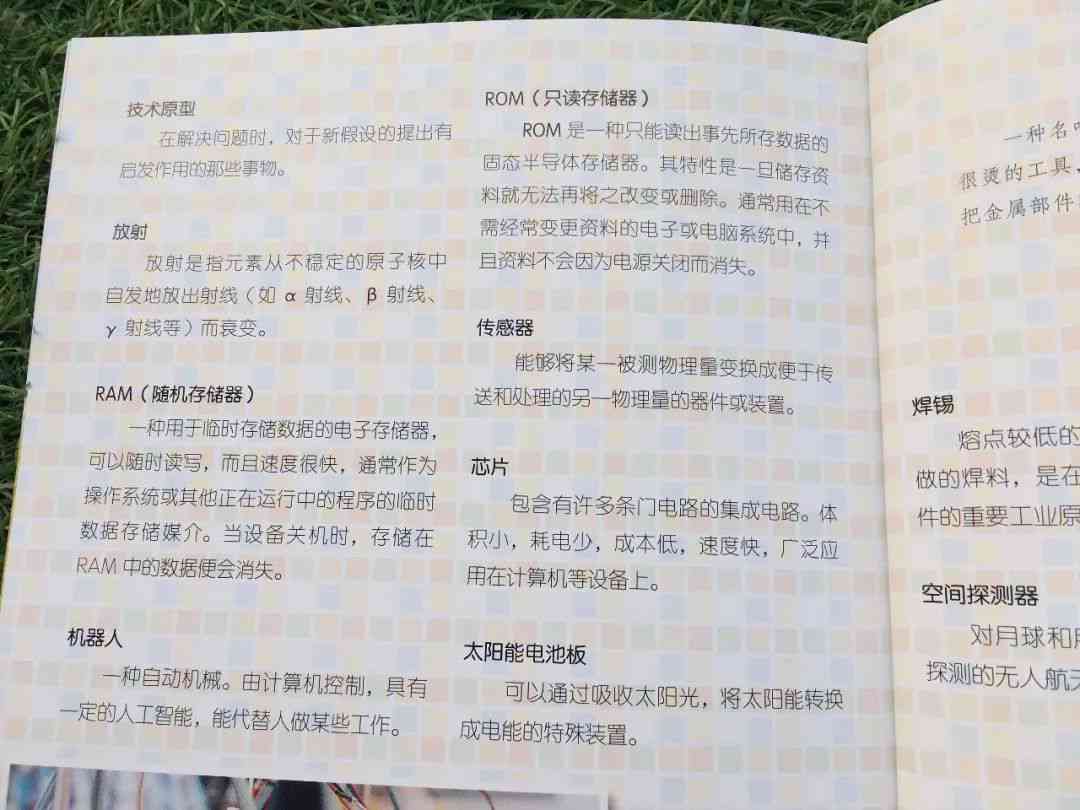 技术原型
在解决问题时，对于新假设的提出有
启发作用的那些事物。
放射
放射是指元素从不稳定的原子核中
自发地放出射线（如 α 射线、β 射线、
γ 射线等）而衰变。
RAM（随机存储器）
一种用于临时存储数据的电子存储器，
可以随时读写，而且速度很快，通常作为
操作系统或其他正在运行中的程序的临时
数据存储媒介。当设备关机时，存储在
RAM 中的数据便会消失。
机器人
一种自动机械。由计算机控制，具有
一定的人工智能，能代替人做某些工作。
ROM（只读存储器）
ROM 是一种只能读出事先所存数据的
固态半导体存储器。其特性是一旦储存资
料就无法再将之改变或删除。通常用在不
需经常变更资料的电子或电脑系统中，并
且资料不会因为电源关闭而消失。
传感器
能够将某一被测物理量变换成便于传
送和处理的另一物理量的器件或装置。
芯片
包含有许多条门电路的集成电路。体
积小，耗电少，成本低，速度快，广泛应
用在计算机等设备上。
太阳能电池板
可以通过吸收太阳光，将太阳能转换
成电能的特殊装置。
一种名
很烫的工具，
把金属部件
焊锡
熔点较低的
做的焊料，是在
件的重要工业原
空间探测器
对月球和
探测的无人航天